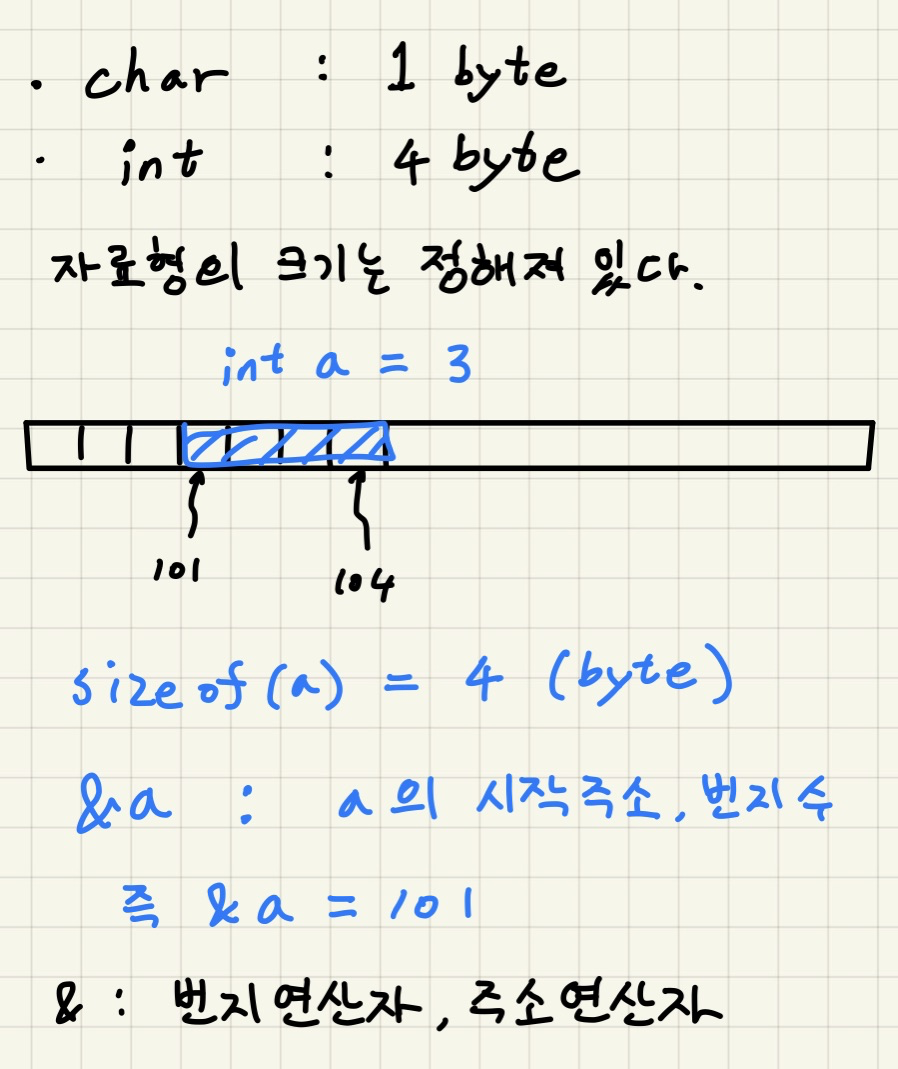 · char : 1 byte
· int : 4 byte
자료형의 크기는 정해져 있다.
int a = 3
101 104
sizeof(a) = 4 (byte)
&a : a의 시작주소, 번지수
즉 &a = 101
& : 번지연산자, 주소연산자